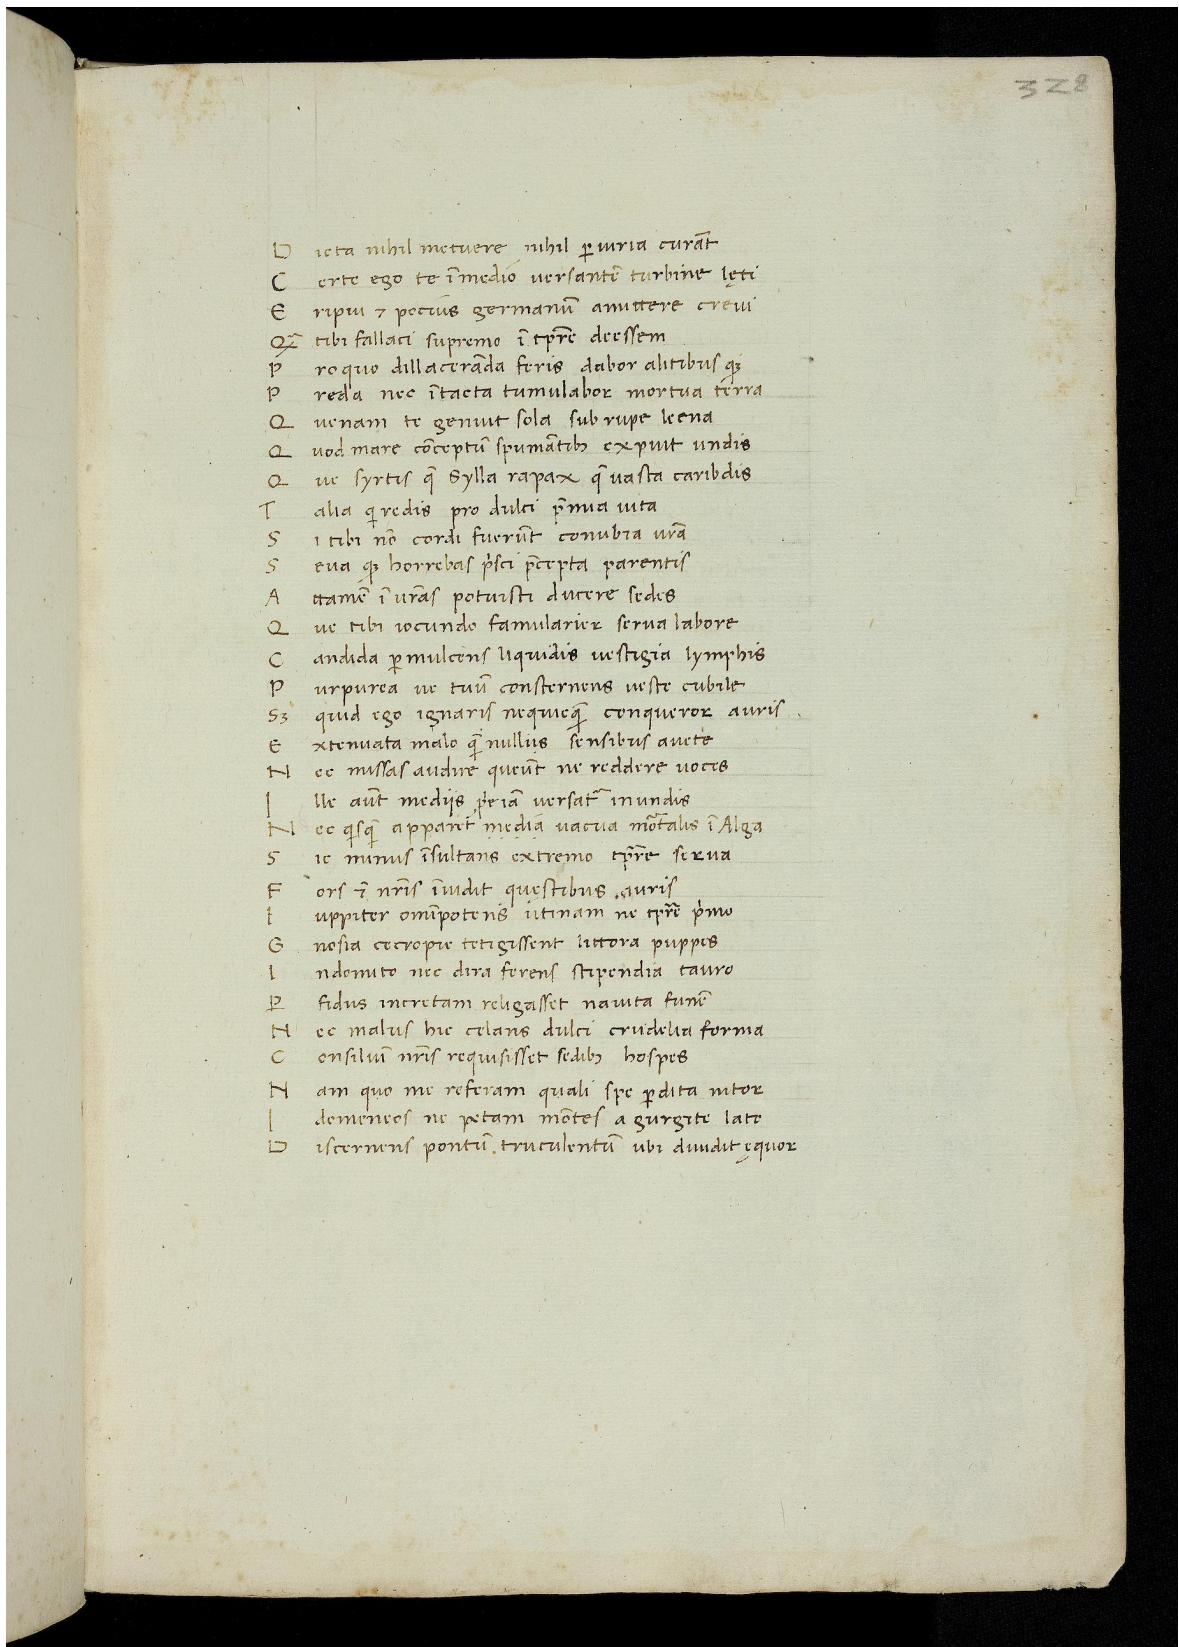 328
Dicta nihil metuere nihil ꝑiuria curāt
Certe ego te ī medio versantē turbine lęti
Eripui ⁊ pocius germanum̄ amittere crevi
Qᷓ tibi fallaci supremo ī tp̄re deessem
Pro quo dillacerāda feris dabor alitibus qꝫ
Preda nec ītacta tumulabor mortua terra
Quenam te genuit sola sub rupe leena
Quod mare cōceptū spumātibꝫ expuit undis
Que syrtis q̄ Sylla rapax q̄ uasta caribdis
Talia qi redis pro dulci p̄mia uita
Si tibi nō cordi fuerūt conubia vr̄a
Seua qꝫ horrebas p̍sci p̄cepta parentis
Attamē ī vr̄as potuisti ducere sedes
Que tibi iocundo famularier serua labore
Candida ꝑmulcens liquidis vestigia lymphis
Purpurea ve tuū consternens veste cubile
Sꝫ quid ego ignaris nequicq̄ conqueror auris
Extenuata malo q̄ nullijs sensibus avete
Nec missas audire queūt ne reddere uoces
Ille aūt medijs ꝓpe iam versatᷓ in undis
Nec qisq̄ apparet mediā uacua mōrtalis ī Alga
Sic nimus īsultans extremo tp̄re serua
Fors ⁊ nr̄is īuidit quęstibus auris
Iuppiter omīpotens utinam ne tp̄re p̍mo
Gnosia cecropie tetigissent littora puppes
Indomito nec dira ferens stipendia tauro
Pfidus incretam religasset nauita funē
Nec malus hic celans dulci crudelia forma
Consiliū nr̄is requisisset sedibꝫ hospes
Nam quo me referam quali spe ꝑdita nitor
Idomeneos ne petam mōtes a gurgite late
Discernens pontū truculentū ubi diuidit ęquor